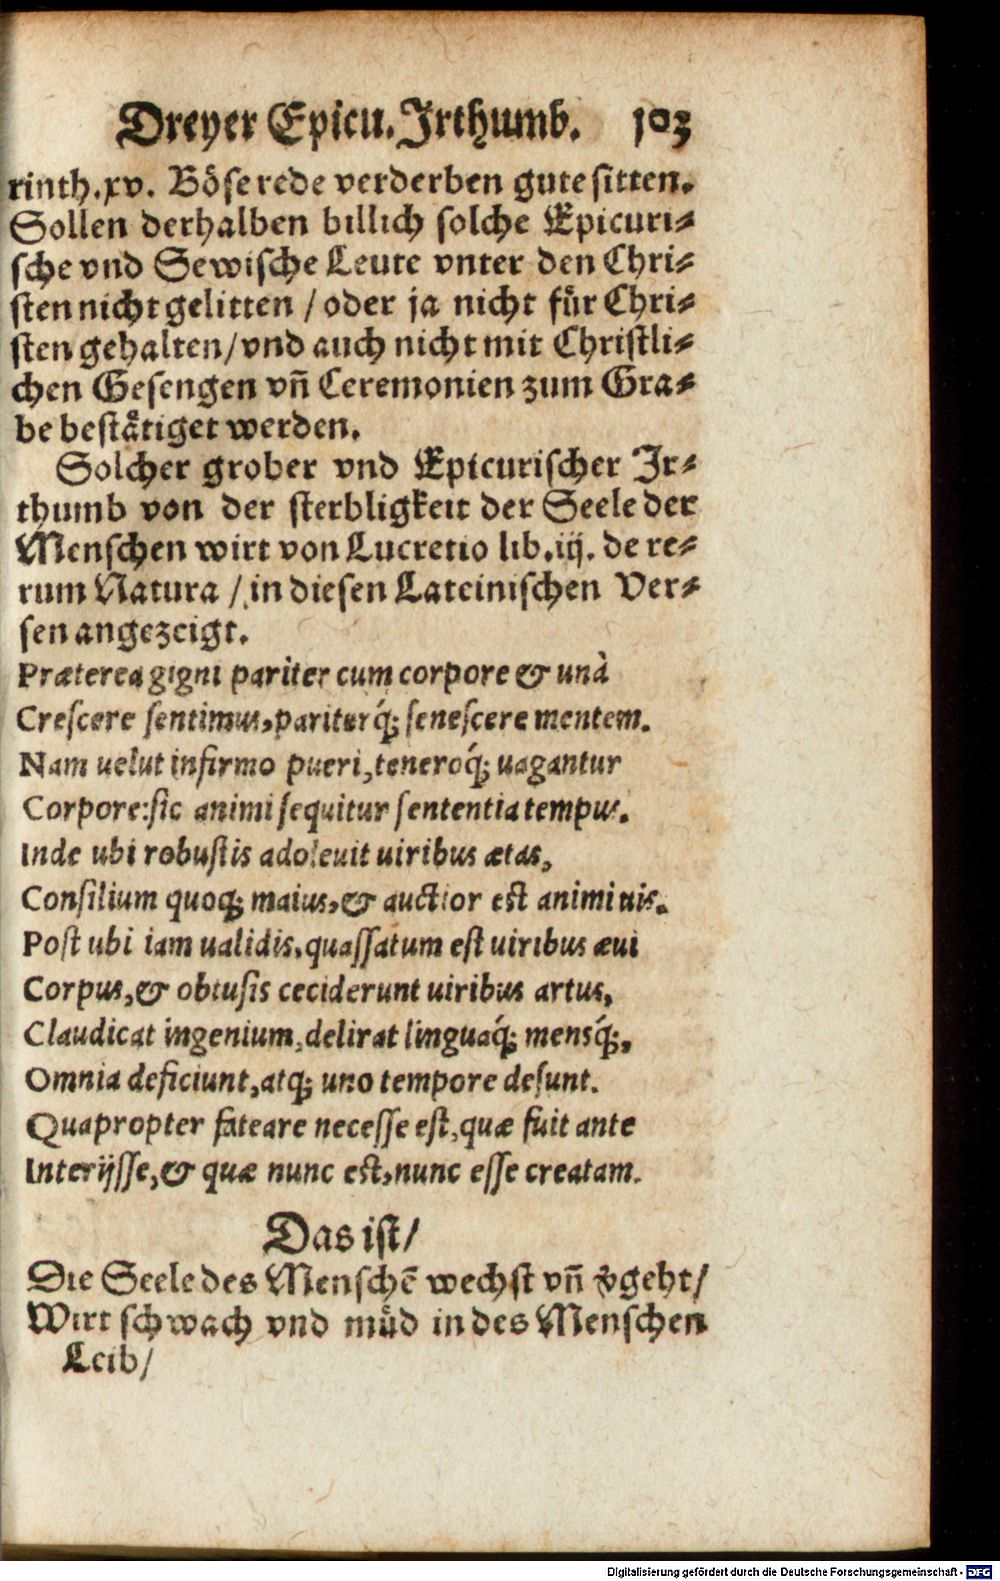 Dreyer Epicu. Irthumb. 103
rinth. xv. Böse rede verderben gute sitten.
Sollen derhalben billich solche Epicuri⸗
sche vnd Sewische Leute vnter den Chri⸗
sten nicht gelitten / oder ja nicht für Chri⸗
sten gehalten / vnd auch nicht mit Christli⸗
chen Gesengen vn̄ Ceremonien zum Gra⸗
be bestätiget werden.
Solcher grober vnd Epicurischer Ir⸗
thumb von der sterbligkeit der Seele der
Menschen wirt von Lucretio lib. iij. de re⸗
rum Natura / in diesen Lateinischen Ver⸗
sen angezeigt.
Præterea gigni pariter cum corpore & unà
Crescere sentimus, pariterq́; senescere mentem.
Nam uelut infirmo pueri, teneroq́; uagantur
Corpore: sic animi sequitur sententia tempus.
Inde ubi robustis adoleuit uiribus ætas,
Consilium quoq; maius, & auctior est animi uis.
Post ubi iam ualidis, quassatum est uiribus æui
Corpus, & obtusis ceciderunt uiribus artus,
Claudicat ingenium, delirat linguaq́; mensq́;,
Omnia deficiunt, atq; uno tempore desunt.
Quapropter fateare necesse est, quæ fuit ante
Interijsse, & quæ nunc est, nunc esse creatam.
Das ist /
Die Seele des Menschē wechst vn̄ v̄geht /
Wirt schwach vnd müd in des Menschen
Leib /
Digitalisierung gefördert durch die Deutsche Forschungsgemeinschaft - DFG